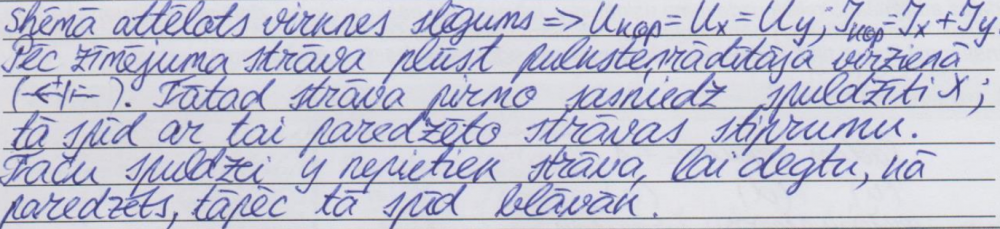 shēmā attēlots virknes slēgums => Ukop = Ux = Uy; Ikop = Ix + Iy.
Pēc zīmējuma strāva plūst pulksteņrādītāja virzienā
(). Tātad strāva pirmo sasniedz spuldzīti x;
tā spīd ar tai paredzēto strāvas stiprumu.
Taču spuldzei y nepietiek strāva, lai degtu, kā
paredzēts, tāpēc tā spīd blāvāk.